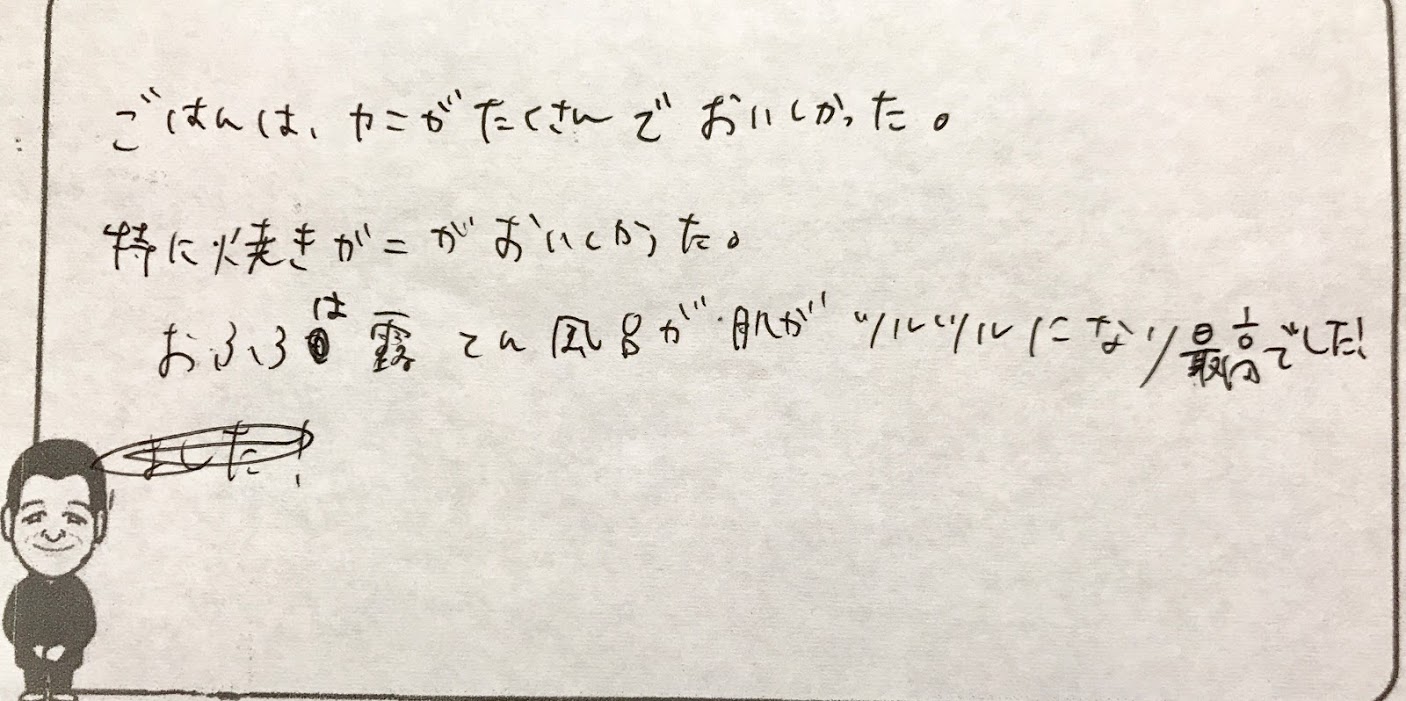 ごはんは、カニがたくさんでおいしかった。
特に焼きがニがおいしかった。
おふろは露てん風呂が肌がツルツルになり最高でした!
ました!